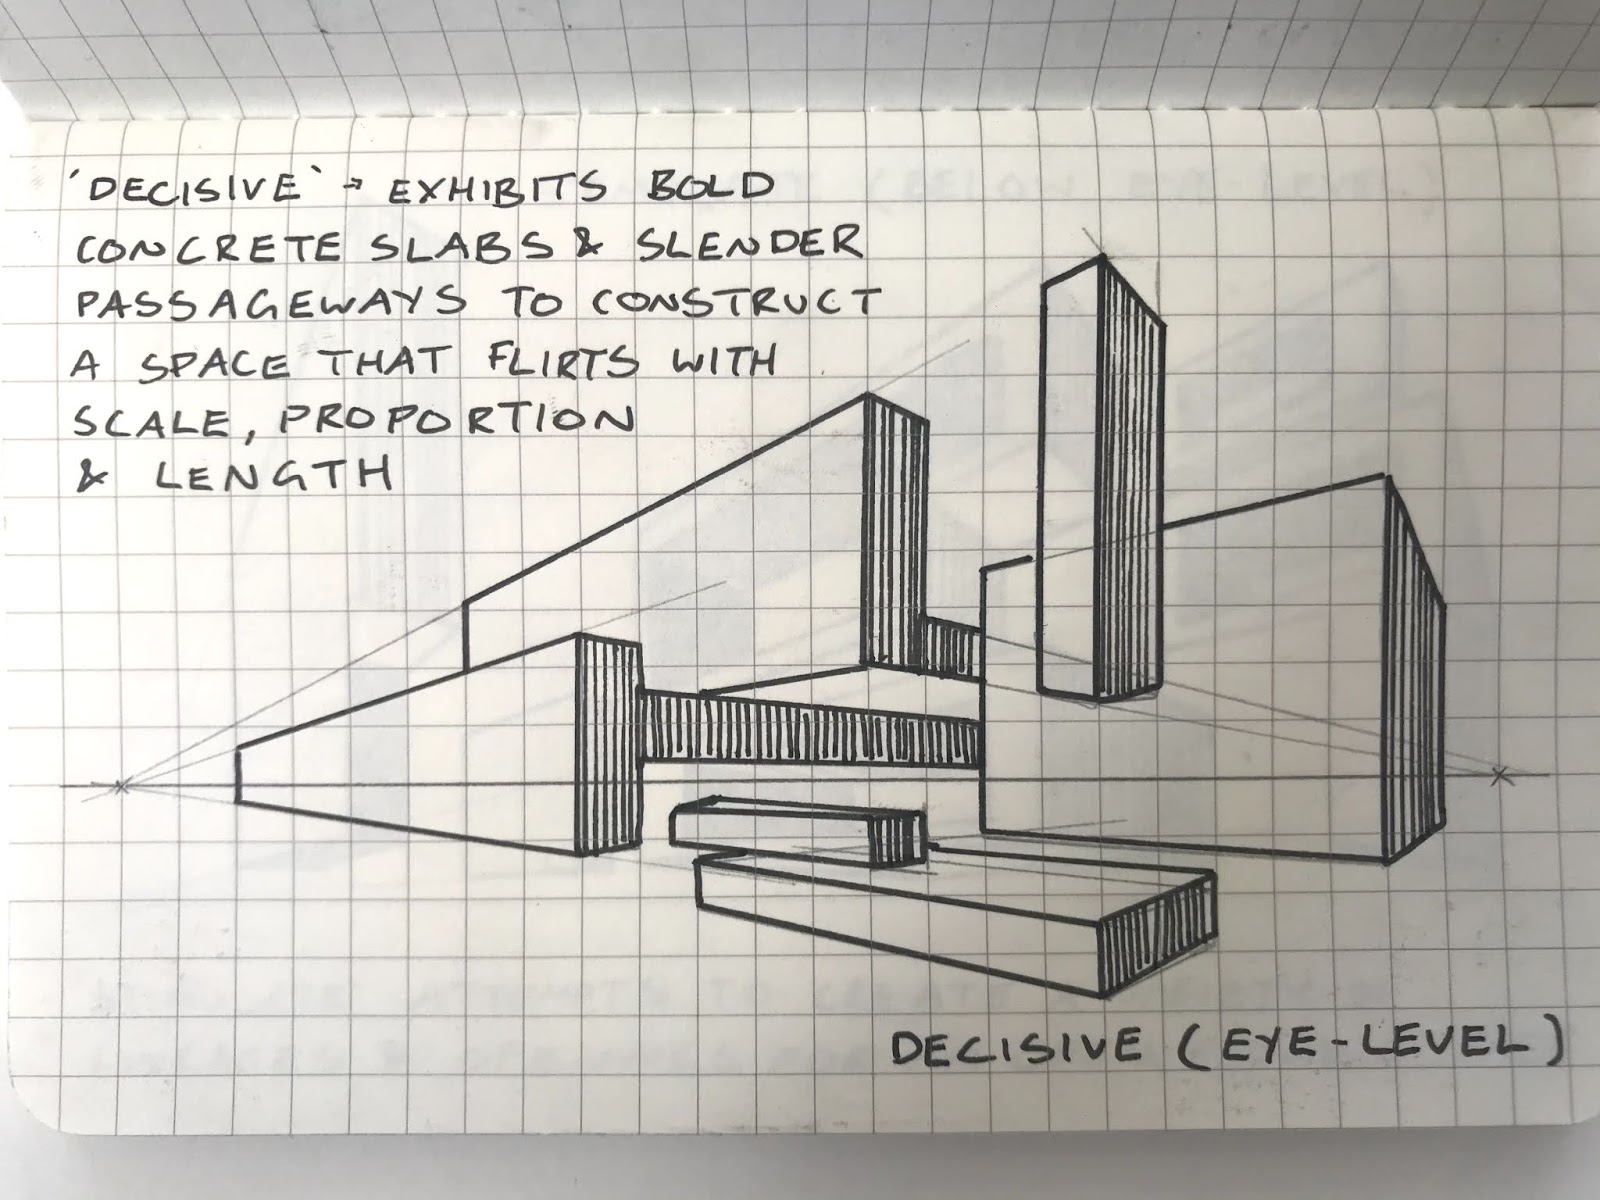 'DECISIVE' → EXHIBITS BOLD
CONCRETE SLABS & SLENDER
PASSAGEWAYS TO CONSTRUCT
A SPACE THAT FLIRTS WITH
SCALE, PROPORTION
& LENGTH
DECISIVE (EYE-LEVEL)